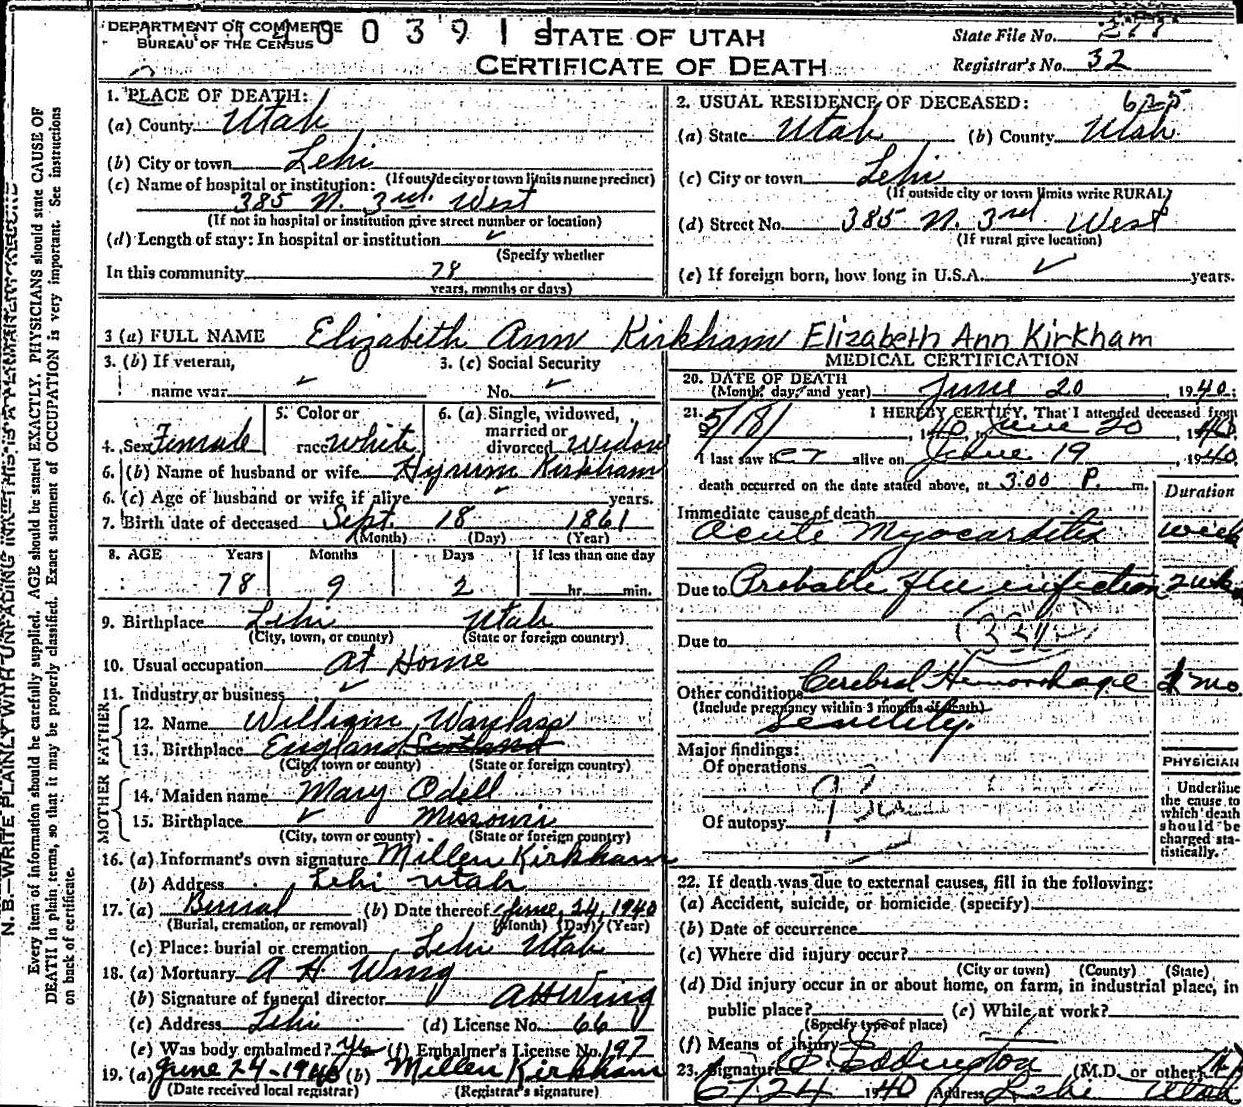 DEPARTMENT OF COMMERCE
BUREAU OF THE CENSUS
0 0 3 9 1 1
STATE OF UTAH
CERTIFICATE OF DEATH
State File No.
Registrar's No. 32
1. PLACE OF DEATH:
(a) County Utah
(b) City or town Lehi
(If outside city or town limits name precinct)
(c) Name of hospital or institution:
385 N. 3rd. West
(If not in hospital or institution give street number or location)
(d) Length of stay: In hospital or institution ✓
(Specify whether
In this community 78
years, months or days)
2. USUAL RESIDENCE OF DECEASED: 625
(a) State Utah (b) County Utah
(c) City or town Lehi
(If outside city or town limits write RURAL)
(d) Street No. 385 N. 3rd West
(If rural give location)
(e) If foreign born, how long in U.S.A. ✓ years.
3 (a) FULL NAME Elizabeth Ann Kirkham Elizabeth Ann Kirkham
3. (b) If veteran, 3. (c) Social Security
name war ✓ No. ✓
4. Sex Female 5. Color or race white 6. (a) Single, widowed, married or divorced widow
6. (b) Name of husband or wife Hyrum Kirkham
6. (c) Age of husband or wife if alive ✓ years.
7. Birth date of deceased Sept. 18 1861
(Month) (Day) (Year)
8. AGE Years Months Days If less than one day
78 9 2 hr. min.
9. Birthplace Lehi Utah
(City, town, or county) (State or foreign country)
10. Usual occupation At Home
11. Industry or business ✓
FATHER
12. Name William Wanlass
13. Birthplace England Scotland
(City, town or county) (State or foreign country)
MOTHER
14. Maiden name Mary Odell
15. Birthplace ✓ Missouri
(City, town or county) (State or foreign country)
16. (a) Informant's own signature Millen Kirkham
(b) Address Lehi Utah
17. (a) Burial (b) Date thereof June 24, 1940
(Burial, cremation, or removal) (Month) (Day) (Year)
(c) Place: burial or cremation Lehi Utah
18. (a) Mortuary A H Wing
(b) Signature of funeral director A H Wing
(c) Address Lehi (d) License No. 66
(e) Was body embalmed? Yes (f) Embalmer's License No. 197
19. (a) June 24-1940 (b) Millen Kirkham
(Date received local registrar) (Registrar's signature)
MEDICAL CERTIFICATION
20. DATE OF DEATH
(Month, day, and year) June 20, 1940;
21. I HEREBY CERTIFY, That I attended deceased from
5/18/, 1940, to June 20, 1940
I last saw her alive on June 19, 1940
death occurred on the date stated above, at 3:00 P. m.
Duration
Immediate cause of death
Acute Myocarditis week
Due to Probable flu infection 2 wk
Due to
Other conditions Cerebral Hemorrhage 1 mo
(Include pregnancy within 3 months of death)
Senility.
Major findings:
Of operations
Of autopsy
PHYSICIAN
Underline
the cause to
which death
should be
charged sta-
tistically.
22. If death was due to external causes, fill in the following:
(a) Accident, suicide, or homicide (specify)
(b) Date of occurrence
(c) Where did injury occur?
(City or town) (County) (State)
(d) Did injury occur in or about home, on farm, in industrial place, in
public place? (e) While at work?
(Specify type of place)
(f) Means of injury
23. Signature Eddington (M.D. or other)
6/24 1940 Address Lehi Utah
N. B.—WRITE PLAINLY WITH UNFADING INK—THIS IS A PERMANENT RECORD
Every item of information should be carefully supplied. AGE should be stated EXACTLY. PHYSICIANS should state CAUSE OF
DEATH in plain terms, so that it may be properly classified. Exact statement of OCCUPATION is very important. See instructions
on back of certificate.